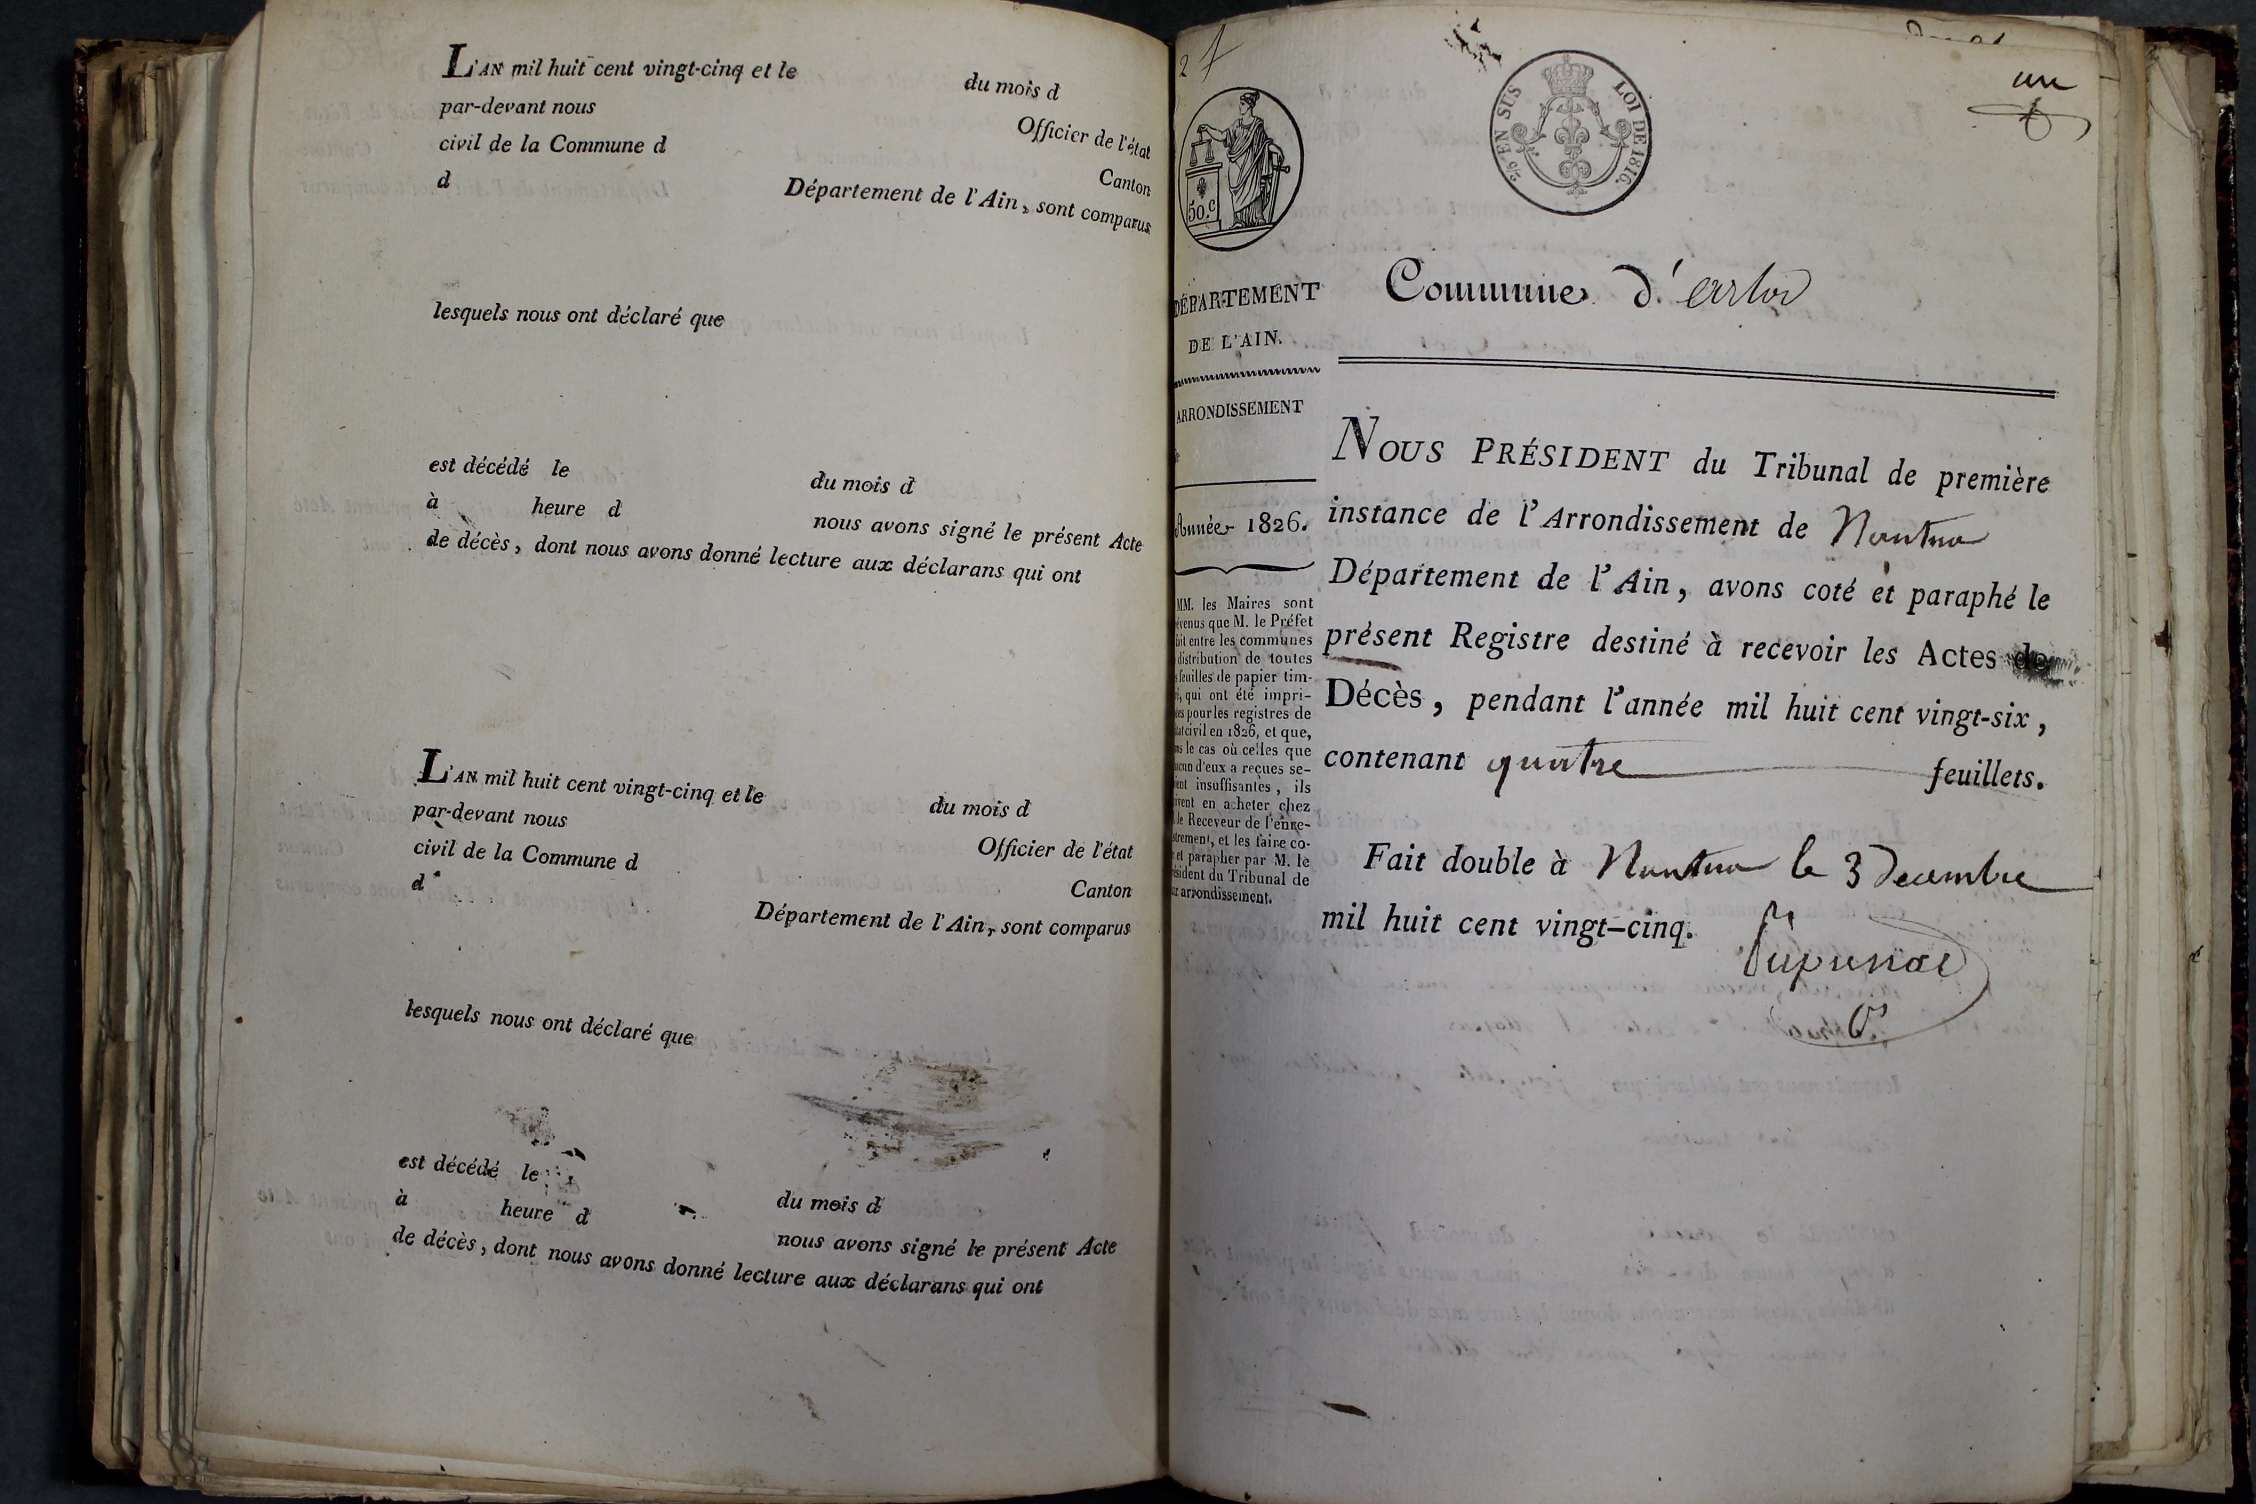 L'AN mil huit cent vingt-cinq et le du mois d
par-devant nous Officier de l'état
civil de la Commune d Canton
d Département de l'Ain, sont comparus
lesquels nous ont déclaré que
est décédé le du mois d
à heure d nous avons signé le présent Acte
de décès, dont nous avons donné lecture aux déclarans qui ont
L'AN mil huit cent vingt-cinq et le du mois d
par-devant nous Officier de l'état
civil de la Commune d Canton
d Département de l'Ain, sont comparus
lesquels nous ont déclaré que
est décédé le du mois d
à heure d nous avons signé le présent Acte
de décès, dont nous avons donné lecture aux déclarans qui ont
2
50.c
EN SUS LOI DE 1816.
un
DÉPARTEMENT
DE L'AIN.
ARRONDISSEMENT
Année 1826.
MM. les Maires sont
que M. le Préfet
entre les communes
distribution de toutes
feuilles de papier tim-
qui ont été impri-
pour les registres de
civil en 1826, et que,
le cas où celles que
d'eux a reçues se-
insuffisantes, ils
en acheter chez
le Receveur de l'enre-
et les faire co-
et parapher par M. le
du Tribunal de
arrondissement.
Commune d'arlod
NOUS PRÉSIDENT du Tribunal de première
instance de l'Arrondissement de Nantua
Département de l'Ain, avons coté et paraphé le
présent Registre destiné à recevoir les Actes de
Décès, pendant l'année mil huit cent vingt-six,
contenant quatre feuillets.
Fait double à Nantua le 3 decembre
mil huit cent vingt-cinq.